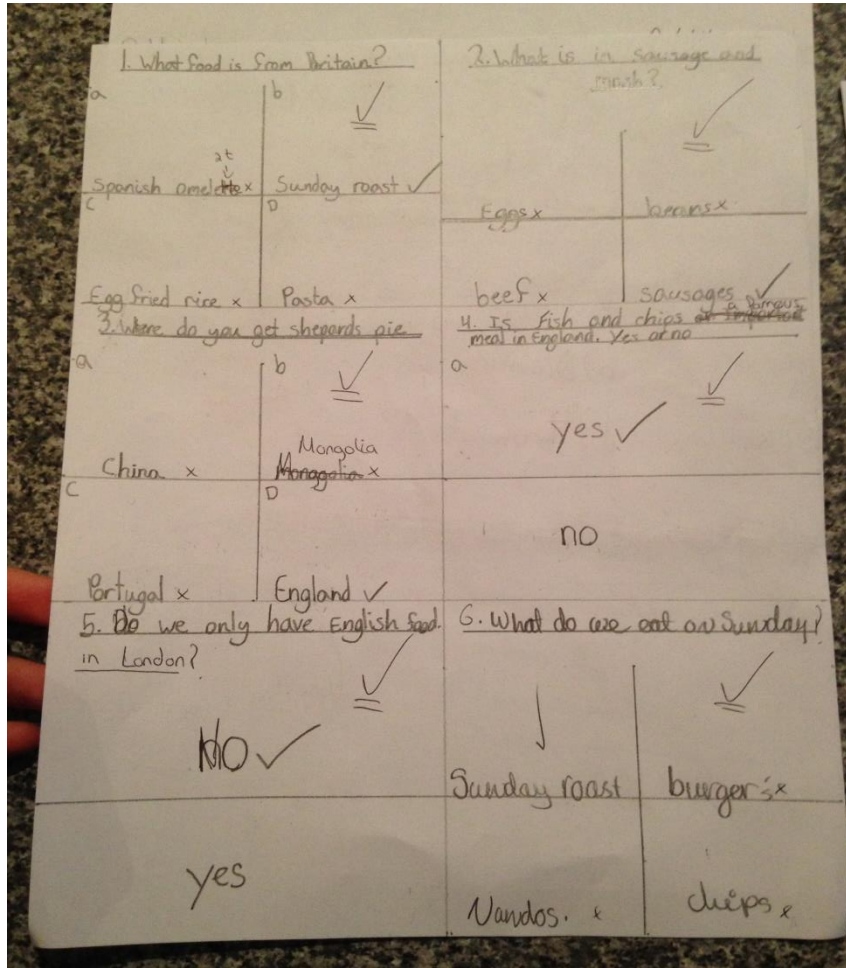 1. What food is from Britain?
a
b
at
Spanish omelette x
Sunday roast ✓
C
D
Egg fried rice x
Pasta x
2. What is in sausage and
mash?
Eggs x
beans x
beef x
sausages ✓
3. Where do you get shepards pie
a
b
China x
Mongolia
x
C
D
Portugal x
England ✓
4. Is Fish and chips a famous
meal in England. Yes or no
a
yes ✓
no
5. Do we only have English food
in London?
No ✓
yes
6. What do we eat on Sunday?
Sunday roast
burger's x
Nandos. x
chips x